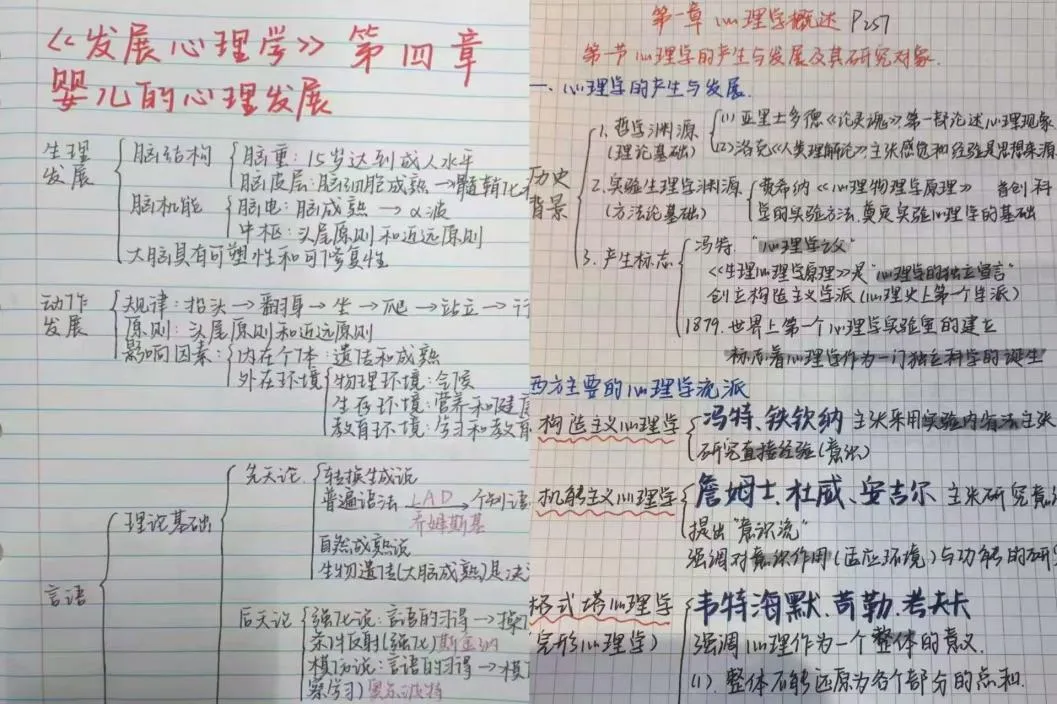 《发展心理学》第四章
婴儿的心理发展
生理发展
脑结构
脑重：15岁达到成人水平
脑皮层：脑细胞成熟→髓鞘化
脑机能
脑电：脑成熟→α波
中枢：头尾原则和近远原则
大脑具有可塑性和可修复性
动作发展
规律：抬头→翻身→坐→爬→站立→行
原则：头尾原则和近远原则
影响因素：
内在个体：遗传和成熟
外在环境
物理环境：
生存环境：营养和健康
教育环境：学习和教育
言语
理论基础
先天论
转换生成说
普遍语法 LAD→个别语
乔姆斯基
自然成熟说
生物遗传(大脑成熟)是决
后天论
强化说：言语的习得→操
条件反射(强化)斯金纳
模仿说：言语的习得→模
察学习)
第一章 心理学概述 P257
第一节 心理学的产生与发展及其研究对象.
一、心理学的产生与发展.
历史背景
1.哲学渊源
(理论基础)
(1)亚里士多德《论灵魂》第一部论述心理现象
(2)洛克《人类理解论》：主张感觉和经验是思想来源
2.实验生理学渊源
(方法论基础)
费希纳《心理物理学原理》 首创科
学的实验方法，奠定实验心理学的基础
3.产生标志
冯特."心理学之父"
《生理心理学原理》是"心理学的独立宣言"
创立构造主义学派(心理史上第一个学派)
1879.世界上第一个心理学实验室的建立
标志着心理学作为一门独立科学的诞生
西方主要的心理学流派
构造主义心理学
冯特、铁钦纳 主张采用实验内省法主张
研究直接经验(意识)
机能主义心理学
詹姆士、杜威、安吉尔 主张研究意
提出"意识流"
强调对意识作用(适应环境)与功能的研
格式塔心理学
(完形心理学)
韦特海默、苛勒、考夫卡
强调心理作为一个整体的意义.
(1).整体不能还原为各个部分的总和.